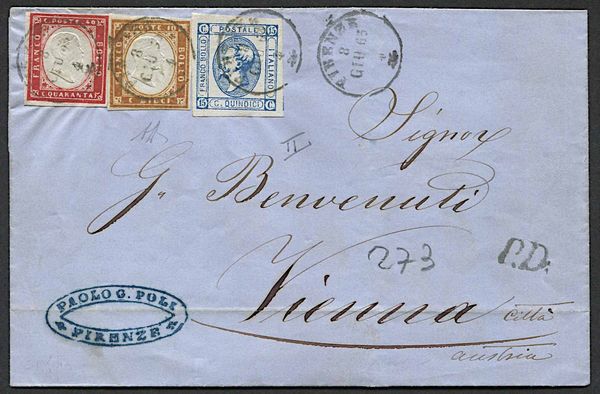 C. POSTE 40
FRANCO
BOLLO
C. QUARANTA
C. POSTE 10
FRANCO
BOLLO
C. DIECI
POSTALE
FRANCO BOLLO
ITALIANO
15 C. QUINDICI C.
FIRENZE
8
GIU 63
II
Signor
G. Benvenuti
273
P.D.
Vienna città
austria
PAOLO G. POLI
FIRENZE